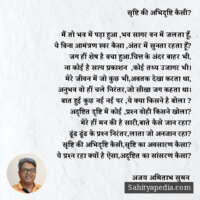 सृष्टि की अभिदृष्टि कैसी?
मैं तो भव में पड़ा हुआ ,भव सागर वन में जलता हूँ,
ये बिना आमंत्रण स्वर कैसा ,अंतर में सुनता रहता हूँ?
जग हीं शेष है बचा हुआ.चित्त के अंदर बाहर भी,
ना कोई है सत्य प्रकाशन ,कोई तथ्य उजागर भी।
मेरे जीवन में जो कुछ भी,अबतक देखा करता था,
अनुभव वो हीं चले निरंतर,जो सीखा जग कहता था।
बात हुई कुछ नई नई पर ,ये क्या किसने है बोला ?
अदृष्टित दृष्टि में कोई ,प्रश्न वोही किसने खोला?
मेरे हीं मन की है सारी,बातें कैसे जान रहा?
ढूंढ ढूंढ के प्रश्न निरंतर,लाता जो अनजान रहा?
सृष्टि की अभिदृष्टि कैसी,सृष्टि का अवसारण कैसा?
ये प्रश्न रहा क्यों है ऐसा,अदृष्टित का सांसरण कैसा?
अजय अमिताभ सुमन
Sahityapedia.com